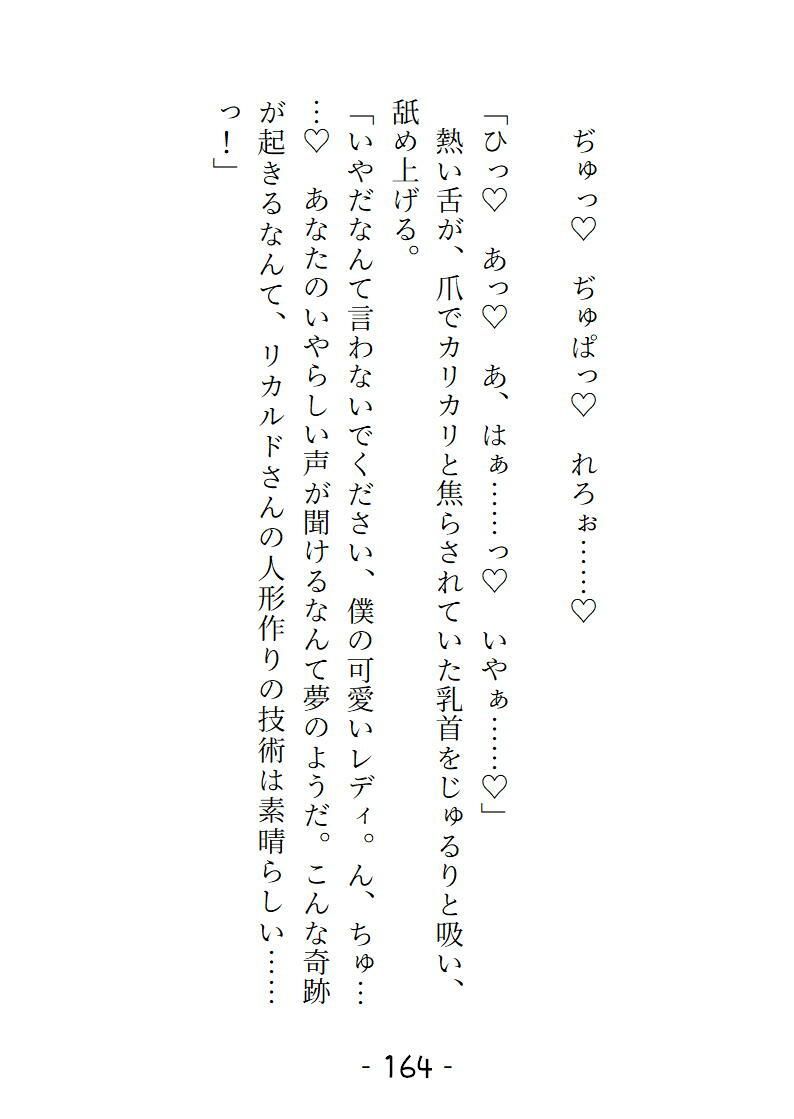 ぢゅっ♡　ぢゅぱっ♡　れろぉ……♡
「ひっ♡　あっ♡　あ、はぁ……っ♡　いやぁ……♡」
熱い舌が、爪でカリカリと焦らされていた乳首をじゅるりと吸い、
舐め上げる。
「いやだなんて言わないでください、僕の可愛いレディ。ん、ちゅ…
…♡　あなたのいやらしい声が聞けるなんて夢のようだ。こんな奇跡
が起きるなんて、リカルドさんの人形作りの技術は素晴らしい……
っ！」
- 164 -